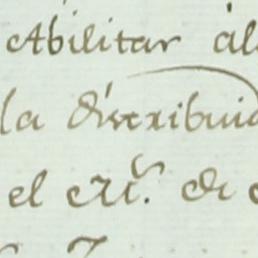 Abilitar ál
la distribuic
el Rl. de